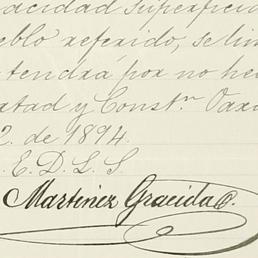 acidad superficie
eblo referido, se lim
tendrá por no he
rtad y Constn. Oax
2. de 1894.
. E. D. L. S.
Martinez Gracida